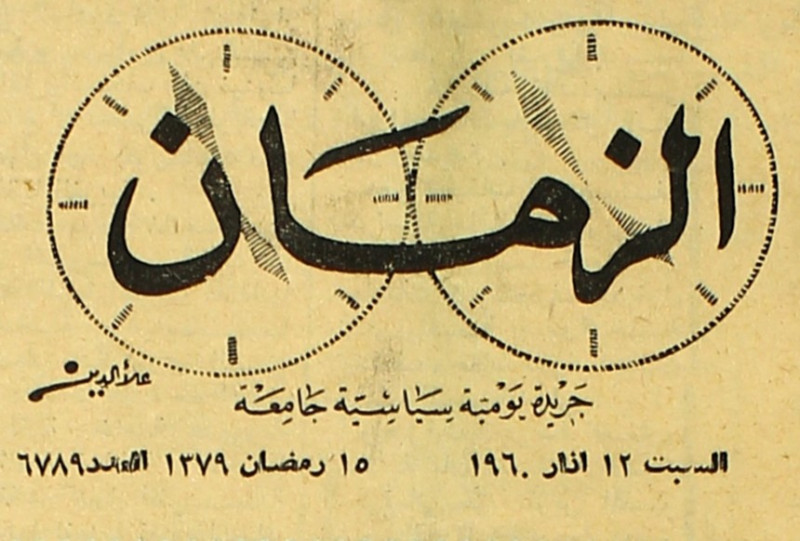 الزمان
علاءالدين
جَرْيَدة يَوْمْيَة سِيَاسْيَّة جَامِعَة
السبت ١٢ اذار ١٩٦٠ ١٥ رمضان ١٣٧٩ العدد ٦٧٨٩